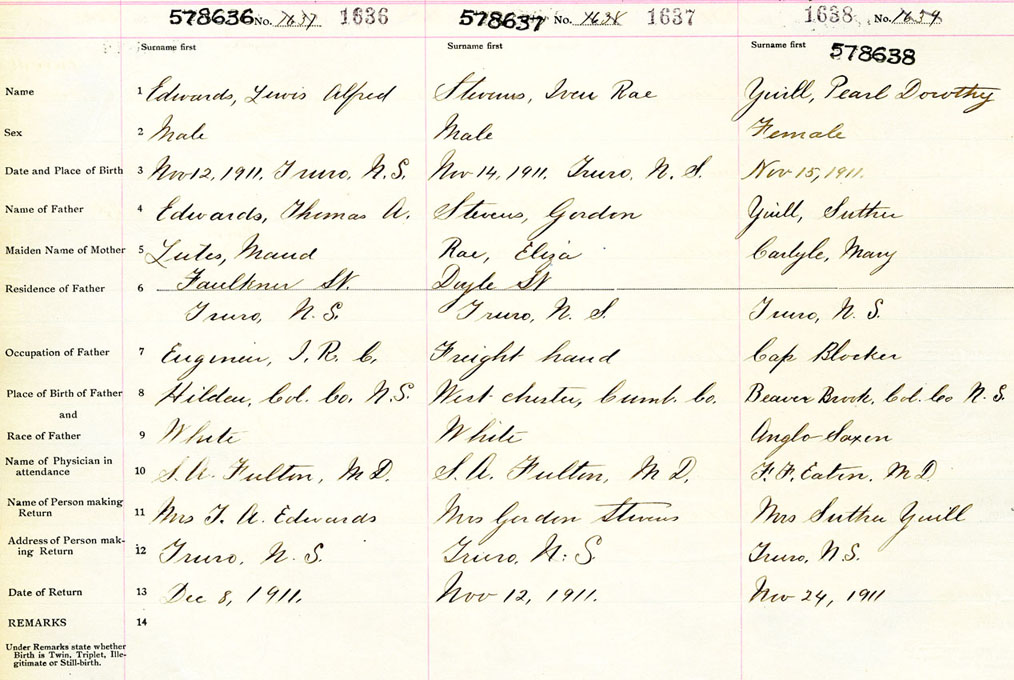 578636 No. 1637 1636 578637 No. 1638 1637 1638 No. 1639
Surname first Surname first Surname first 578638
Name 1 Edwards, Lewis Alfred Stevens, Iven Rae Yuill, Pearl Dorothy
Sex 2 Male Male Female
Date and Place of Birth 3 Nov 12, 1911, Truro, N.S. Nov 14, 1911. Truro, N. S. Nov 15, 1911.
Name of Father 4 Edwards, Thomas A. Stevens, Gordon Yuill, Suther
Maiden Name of Mother 5 Lutes, Maud Rae, Eliza Carlyle, Mary
Residence of Father 6 Faulkner St. Doyle St
Truro, N.S. Truro, N. S. Truro, N. S.
Occupation of Father 7 Engineer, I. R. C. Freight hand Cap Blocker
Place of Birth of Father 8 Hilden, Col. Co. N.S. West chester, Cumb. Co. Beaver Brook, Col. Co N. S.
and
Race of Father 9 White White Anglo Saxon
Name of Physician in attendance 10 S. A. Fulton, M D. S. A. Fulton, M D. F. F. Eaton, M D
Name of Person making Return 11 Mrs T. A. Edwards Mrs Gordon Stevens Mrs Suther Yuill
Address of Person mak-
ing Return 12 Truro, N. S. Truro, N. S. Truro, N.S.
Date of Return 13 Dec 8, 1911. Nov 12, 1911. Nov 24, 1911
REMARKS 14
Under Remarks state whether
Birth is Twin, Triplet, Ille-
gitimate or Still-birth.